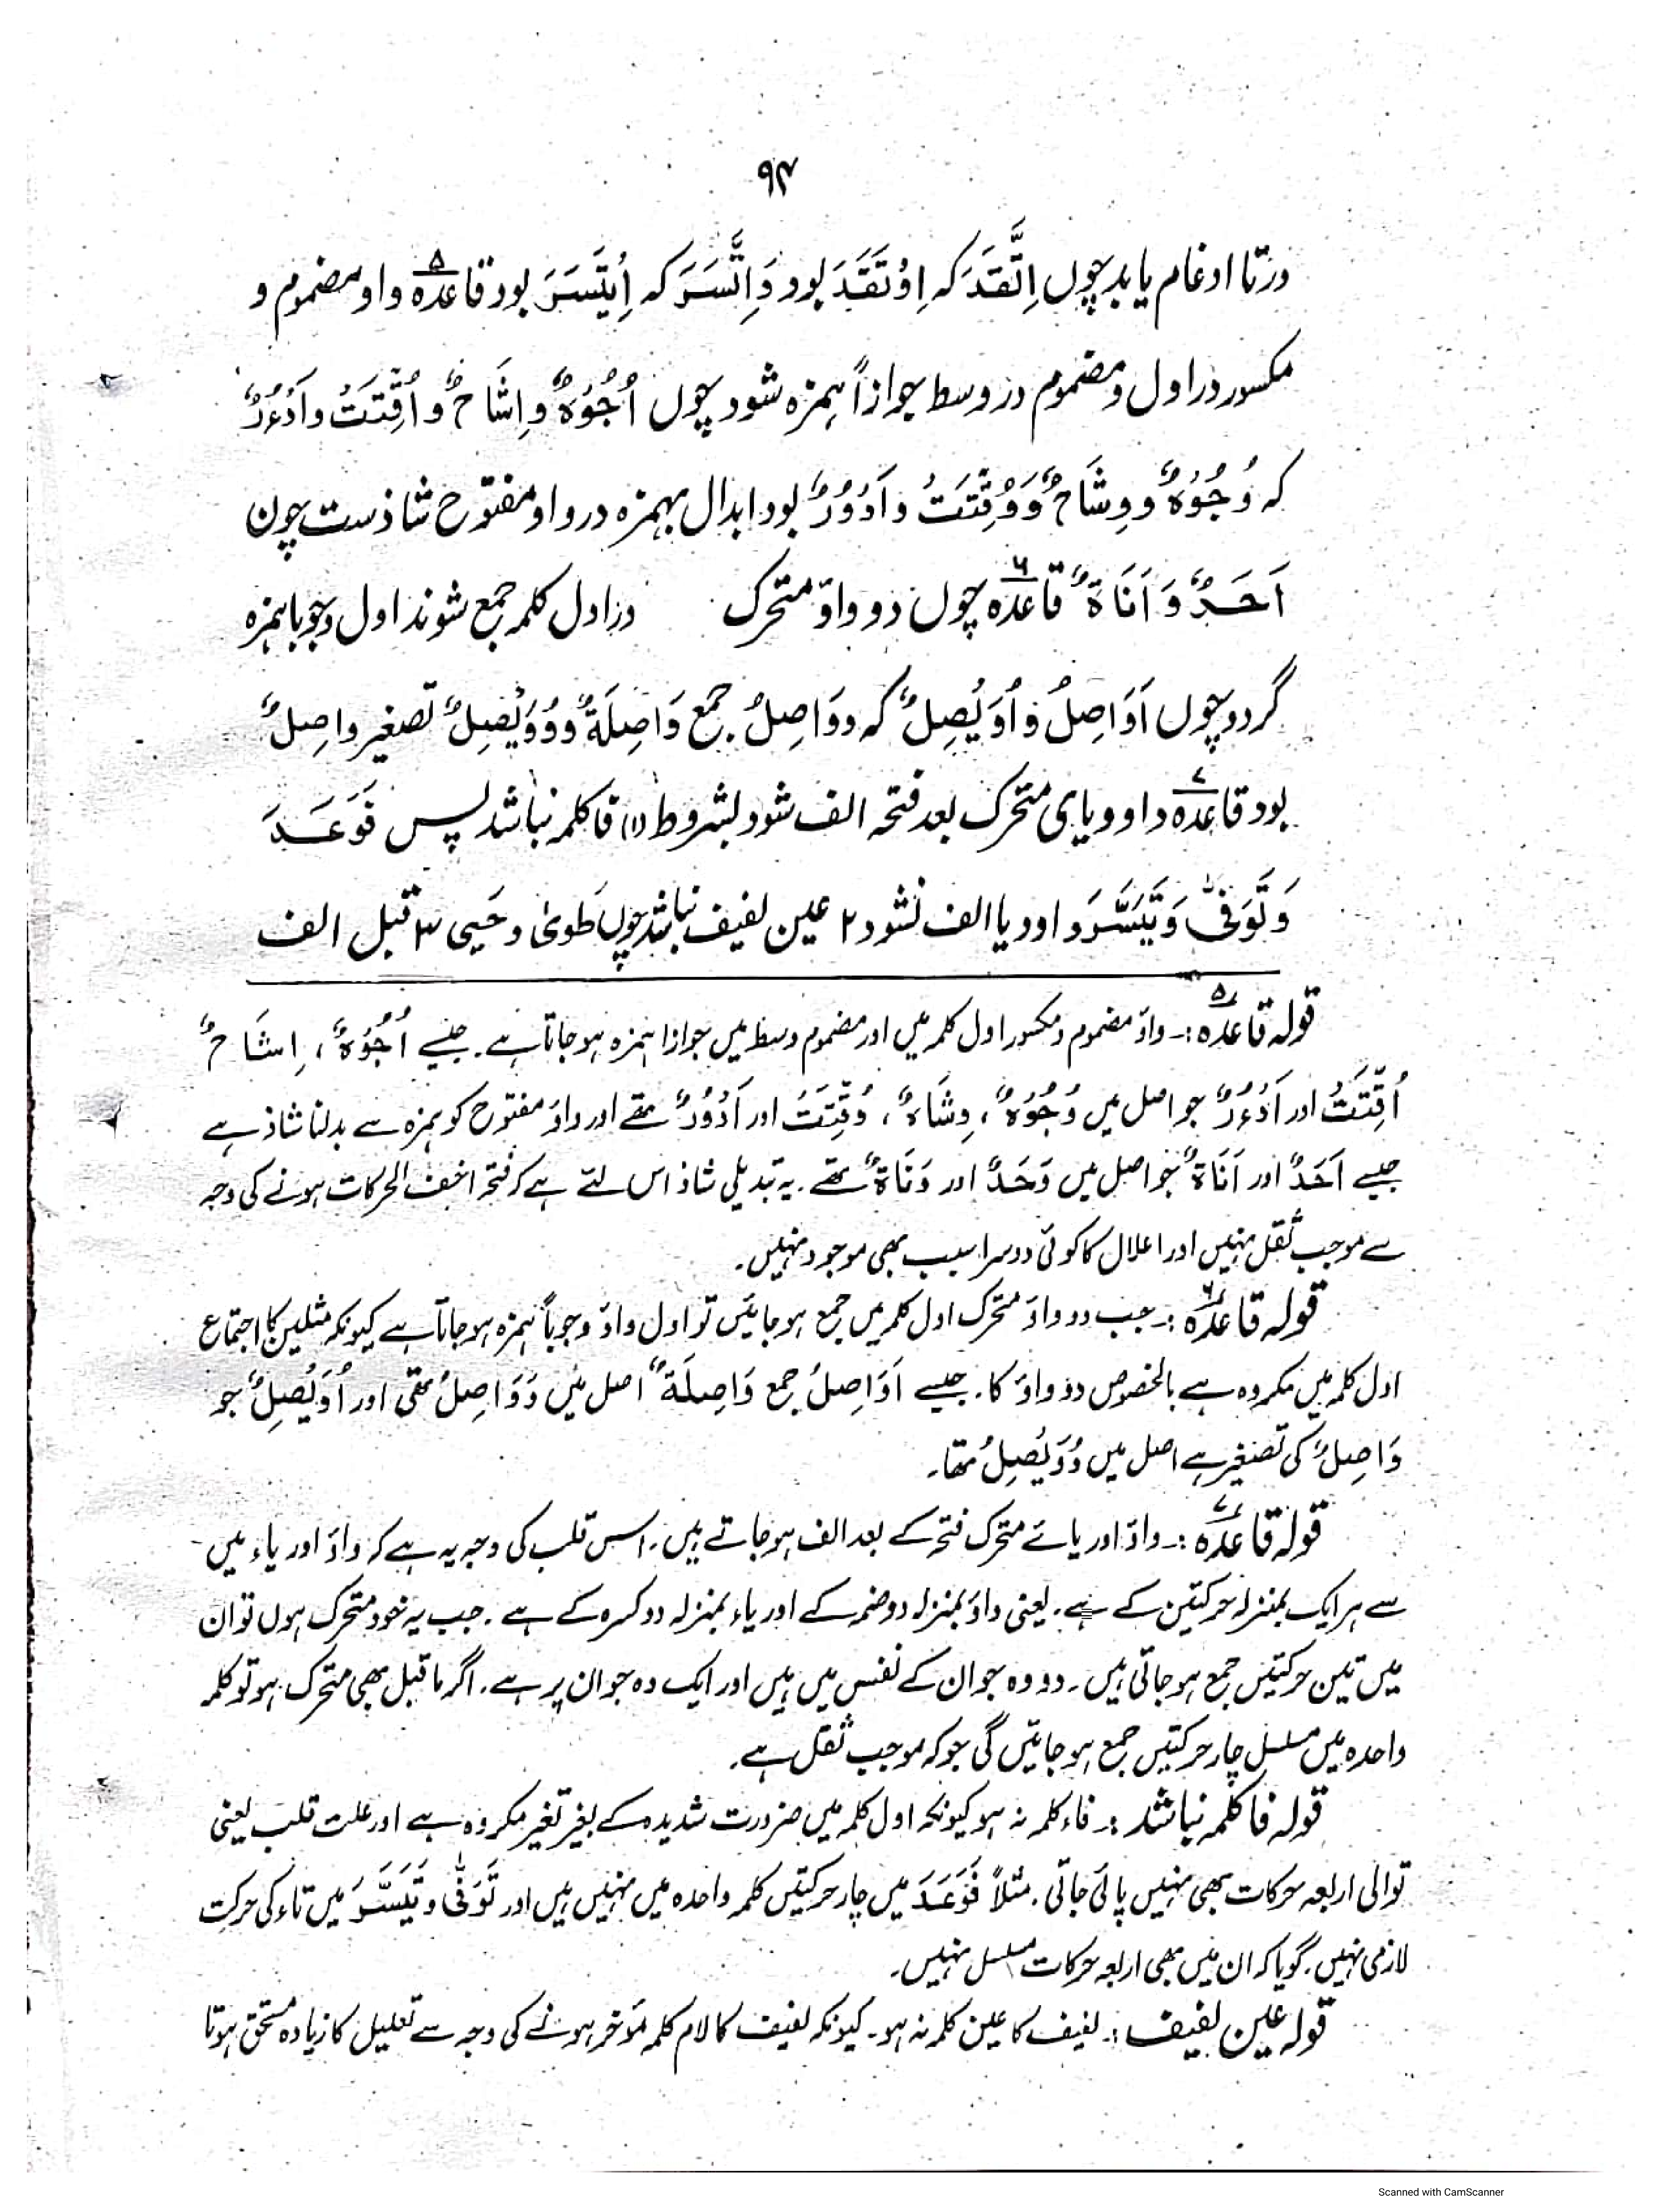 ۹۴
در تا ادغام یابد چوں اِتَّقَدَ کہ اِوْتَقَدَ بود وَاِتَّسَرَ کہ اِیْتَسَرَ بود قاعدہ ۵ واو مضموم و
مکسور در اول و مضموم در وسط جوازاً ہمزہ شود چوں اُجُوْہٌ و اِشَاحٌ و اُقِّتَتْ و اَدْءُرٌ
کہ وُجُوْہٌ و وِشَاحٌ وَ وُقِّتَتْ و اَدْوُرٌ بود ابدال بہمزہ در واو مفتوح شاذ ست چون
اَحَدٌ وَ اَنَاةٌ قاعدہ ۶ چوں دو واوٓ متحرک در اول کلمہ جمع شوند اول وجوبا ہمزہ
گردد چوں اَوَاصِلُ و اُوَیْصِلٌ کہ ووَاصِلُ جمع وَاصِلَةٌ و وُوَیْصِلٌ تصغیر واصِلٌ
بود قاعدہ ۷ واو و یای متحرک بعد فتحہ الف شود بشروط (۱) فا کلمہ نباشد پس فَوَعَدَ
وَتَوَفّٰی وَتَیَسَّرَ واو و یا الف نشود ۲ عین لفیف نباشد چوں طَویٰ و حَیِیَ ۳ قبل الف
قولہ قاعدہ ۵ :۔ واوٓ مضموم و مکسور اول کلمہ میں اور مضموم وسط میں جوازا ہمزہ ہو جاتا ہے۔ جیسے اُجُوْہٌ ، اِشَاحٌ
اُقِّتَتْ اور اَدْءُرٌ جو اصل میں وُجُوْہٌ ، وِشَاہٌ ، وُقِّتَتْ اور اَدْوُرٌ تھے اور واوٓ مفتوح کو ہمزہ سے بدلنا شاذ ہے
جیسے اَحَدٌ اور اَنَاةٌ جو اصل میں وَحَدٌ اور وَنَاةٌ تھے۔ یہ تبدیلی شاذ اس لئے ہے کہ فتحہ اخف الحرکات ہونے کی وجہ
سے موجب ثقل نہیں اور اعلال کا کوئی دوسرا سبب بھی موجود نہیں۔
قولہ قاعدہ ۶ :۔ جب دو واوٓ متحرک اول کلمہ میں جمع ہو جائیں تو اول واوٓ وجوباً ہمزہ ہو جاتا ہے کیونکہ مثلین کا اجتماع
اول کلمہ میں مکروہ ہے بالخصوص دو واوٓ کا۔ جیسے اَوَاصِلُ جمع وَاصِلَةٌ اصل میں وَوَاصِلُ تھی اور اُوَیْصِلٌ جو
وَاصِلٌ کی تصغیر ہے اصل میں وُوَیْصِلٌ تھا۔
قولہ قاعدہ ۷ :۔ واوٓ اور یائے متحرک فتحہ کے بعد الف ہو جاتے ہیں۔ اس قلب کی وجہ یہ ہے کہ واوٓ اور یاء میں
سے ہر ایک بمنزلہ حرکتین کے ہے۔ یعنی واوٓ بمنزلہ دو ضمہ کے اور یاء بمنزلہ دو کسرہ کے ہے۔ جب یہ خود متحرک ہوں تو ان
میں تین حرکتیں جمع ہو جاتی ہیں۔ دو وہ جو ان کے نفس میں ہیں اور ایک وہ جو ان پر ہے۔ اگر ماقبل بھی متحرک ہو تو کلمہ
واحدہ میں مسلسل چار حرکتیں جمع ہو جائیں گی جو کہ موجب ثقل ہے۔
قولہ فا کلمہ نباشد :۔ فاء کلمہ نہ ہو کیونکہ اول کلمہ میں ضرورت شدیدہ کے بغیر تغیر مکروہ ہے اور علت قلب یعنی
توالی اربعہ حرکات بھی نہیں پائی جاتی۔ مثلاً فَوَعَدَ میں چار حرکتیں کلمہ واحدہ میں نہیں ہیں اور تَوَفّٰی و تَیَسَّرَ میں تاء کی حرکت
لازمی نہیں۔ گویا کہ ان میں بھی اربعہ حرکات مسلسل نہیں۔
قولہ عین لفیف :۔ لفیف کا عین کلمہ نہ ہو۔ کیونکہ لفیف کا لام کلمہ مؤخر ہونے کی وجہ سے تعلیل کا زیادہ مستحق ہوتا
Scanned with CamScanner